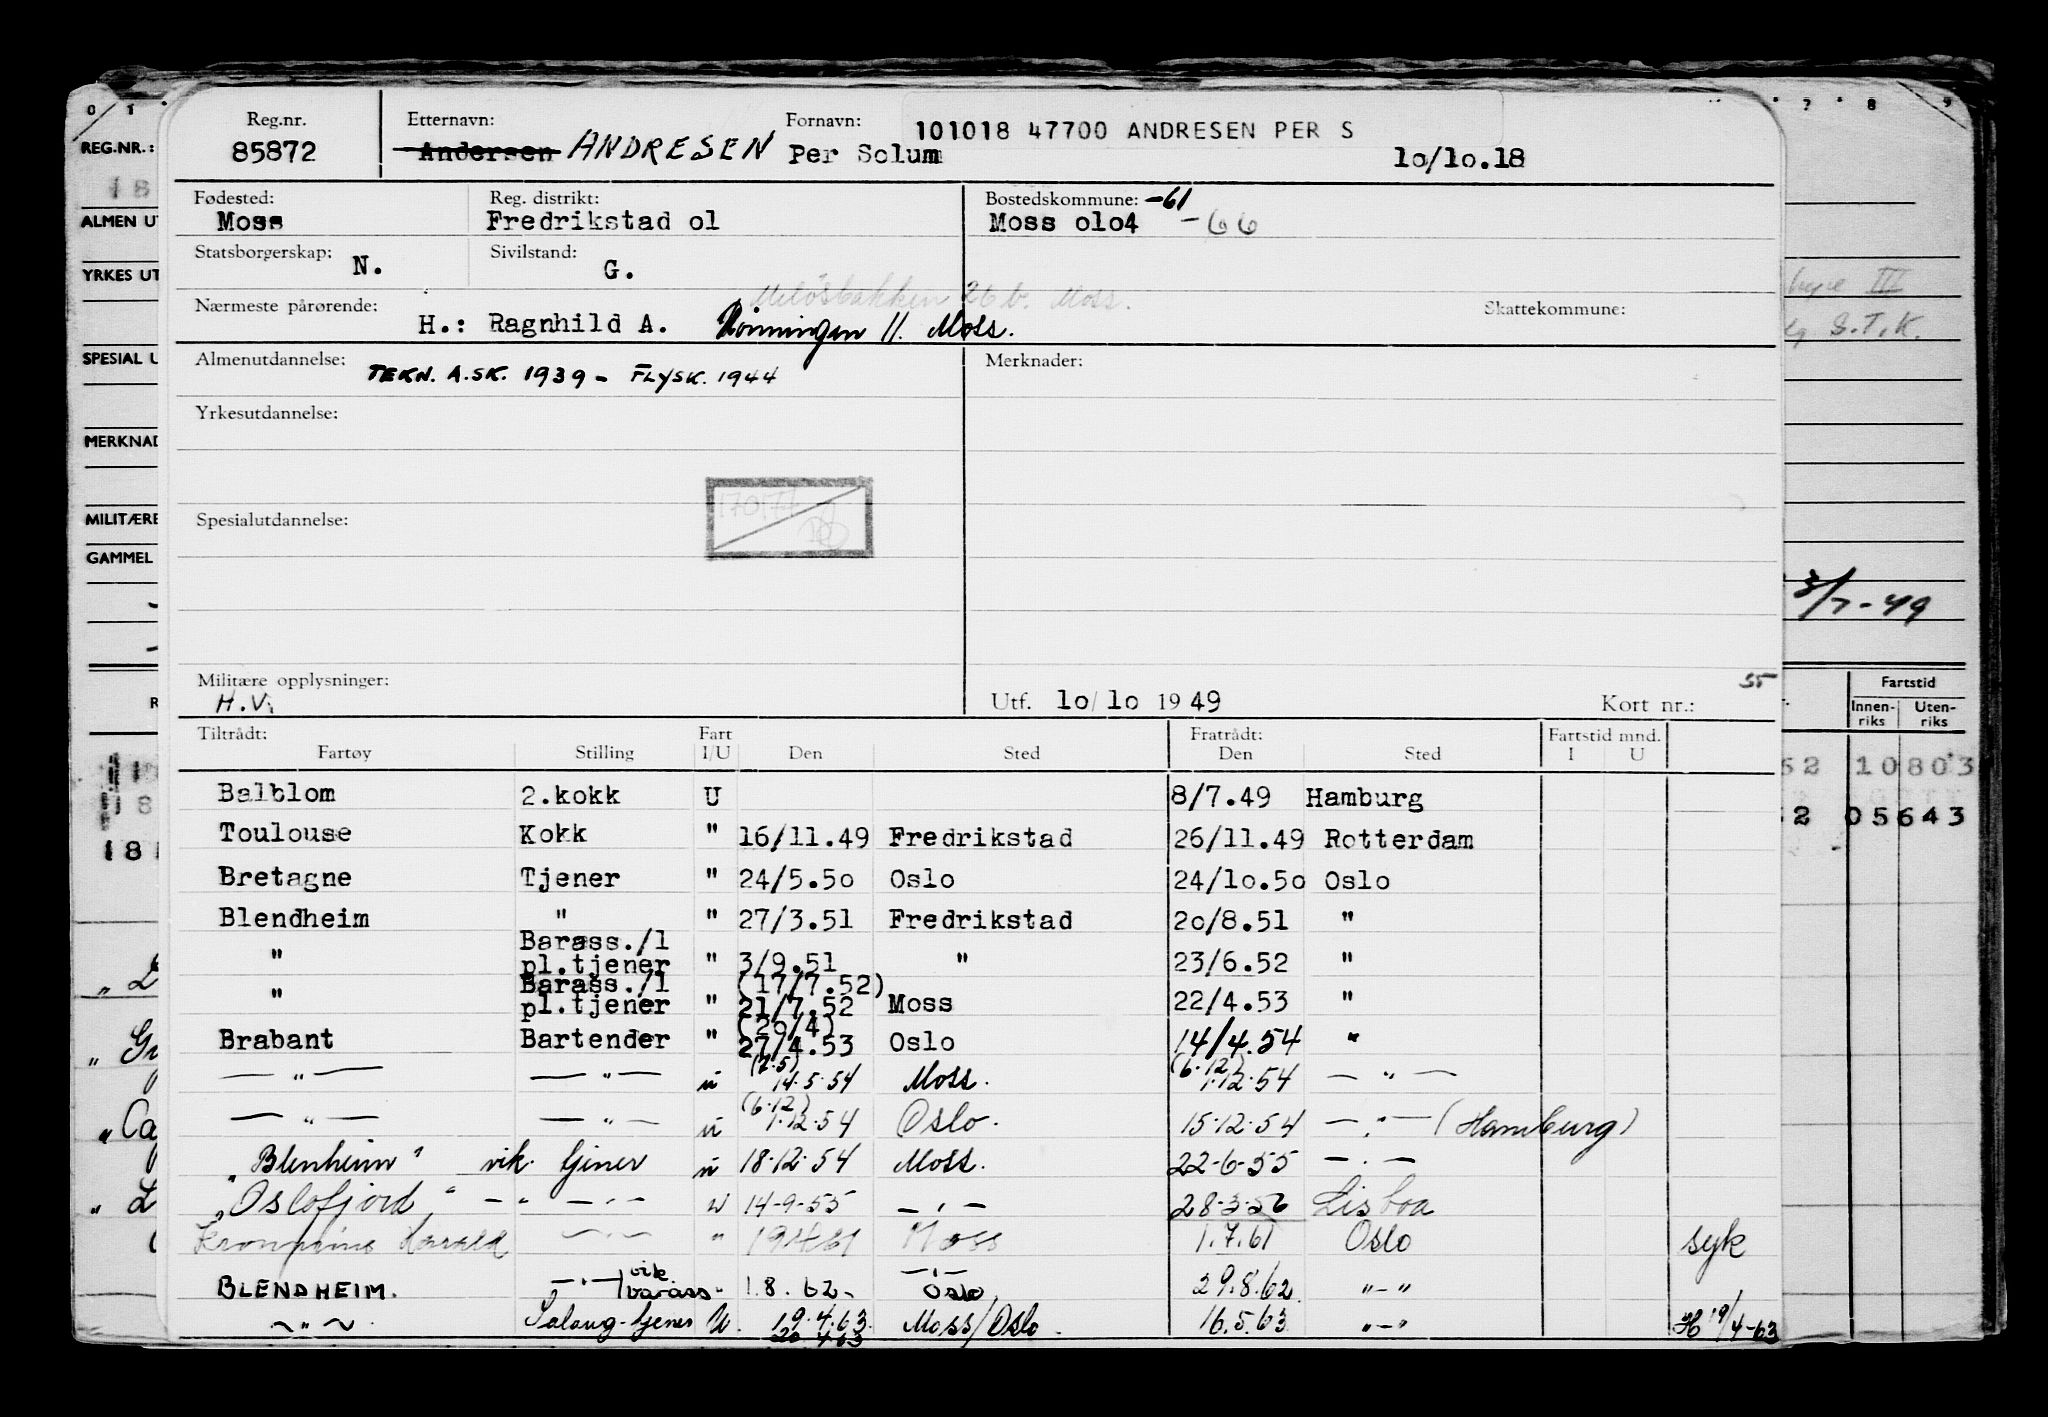 0 1 7 8 9
REG.NR.:
ALMEN UT
YRKES UT
SPESIAL U
MERKNAD
MILITÆRE
GAMMEL
Reg.nr. Etternavn: Fornavn: 101018 47700 ANDRESEN PER S
85872 Andersen ANDRESEN Per Solum 10/10.18
Fødested: Reg. distrikt: Bostedskommune: -61
Moss Fredrikstad 01 Moss 0104 -66
Statsborgerskap: N. Sivilstand: G.
Meløsbakken 26 b. Moss.
Nærmeste pårørende: H.: Ragnhild A. Rønningen 11. Moss. Skattekommune:
S.T.K.
Almenutdannelse: TEKN. A.SK. 1939 - FLYSK. 1944 Merknader:
Yrkesutdannelse:
Spesialutdannelse:
3/7-49
Militære opplysninger: H.V. Utf. 10/10 1949 Kort nr.: 55
Fartstid
Innen-riks Uten-riks
Tiltrådt: Fart Fratrådt: Fartstid mnd.
Fartøy Stilling I/U Den Sted Den Sted I U
Balblom 2.kokk U 8/7.49 Hamburg
Toulouse Kokk " 16/11.49 Fredrikstad 26/11.49 Rotterdam
Bretagne Tjener " 24/5.50 Oslo 24/10.50 Oslo
Blendheim " " 27/3.51 Fredrikstad 20/8.51 "
" Barass./l pl.tjener " 3/9.51 " 23/6.52 "
" Barass./l pl.tjener " (17/7.52) 21/7.52 Moss 22/4.53 "
Brabant Bartender " (20/4) 27/4.53 Oslo 14/4.54 "
— " — — " — u (7.5) 14.5.54 Moss. (6.12) 1.12.54 — " —
— " — — " — u (6.12) 1.12.54 Oslo. 15.12.54 — " — (Hamburg)
"Blenheim" vik. tjener u 18.12.54 Moss. 22-6-55 — " —
"Oslofjord" — " — — " — u 14-9-55 — " — 28-3-56 Lisboa
Kronprins Harald — " — " 19461 Moss 1.7.61 Oslo syk
BLENDHEIM. — " — / vik. barass " 1.8.62 — " — Oslo 29.8.62 " — "
~ " ~ Salong-tjener U. 19.4.63 20 4 63 Moss/Oslo. 16.5.63 " — " H 19/4-63
10803
05643